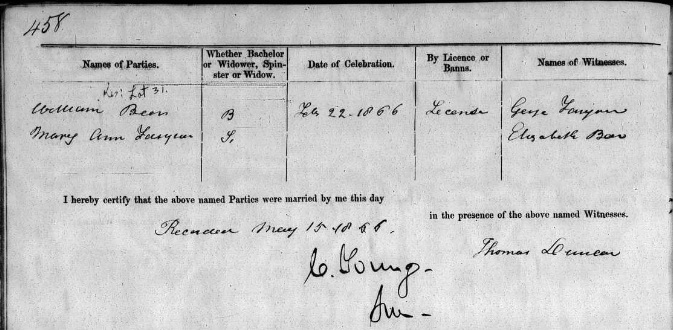 458
Names of Parties. Whether Bachelor or Widower, Spinster or Widow. Date of Celebration. By Licence or Banns. Names of Witnesses.
Res: Lot 31.
William Bears B Feb 22-1866 Lecence George
Mary Ann S. Elizabeth
I hereby certify that the above named Parties were married by me this day
in the presence of the above named Witnesses.
Recorded May 15-1866.
Thomas Duncan
C. Young-